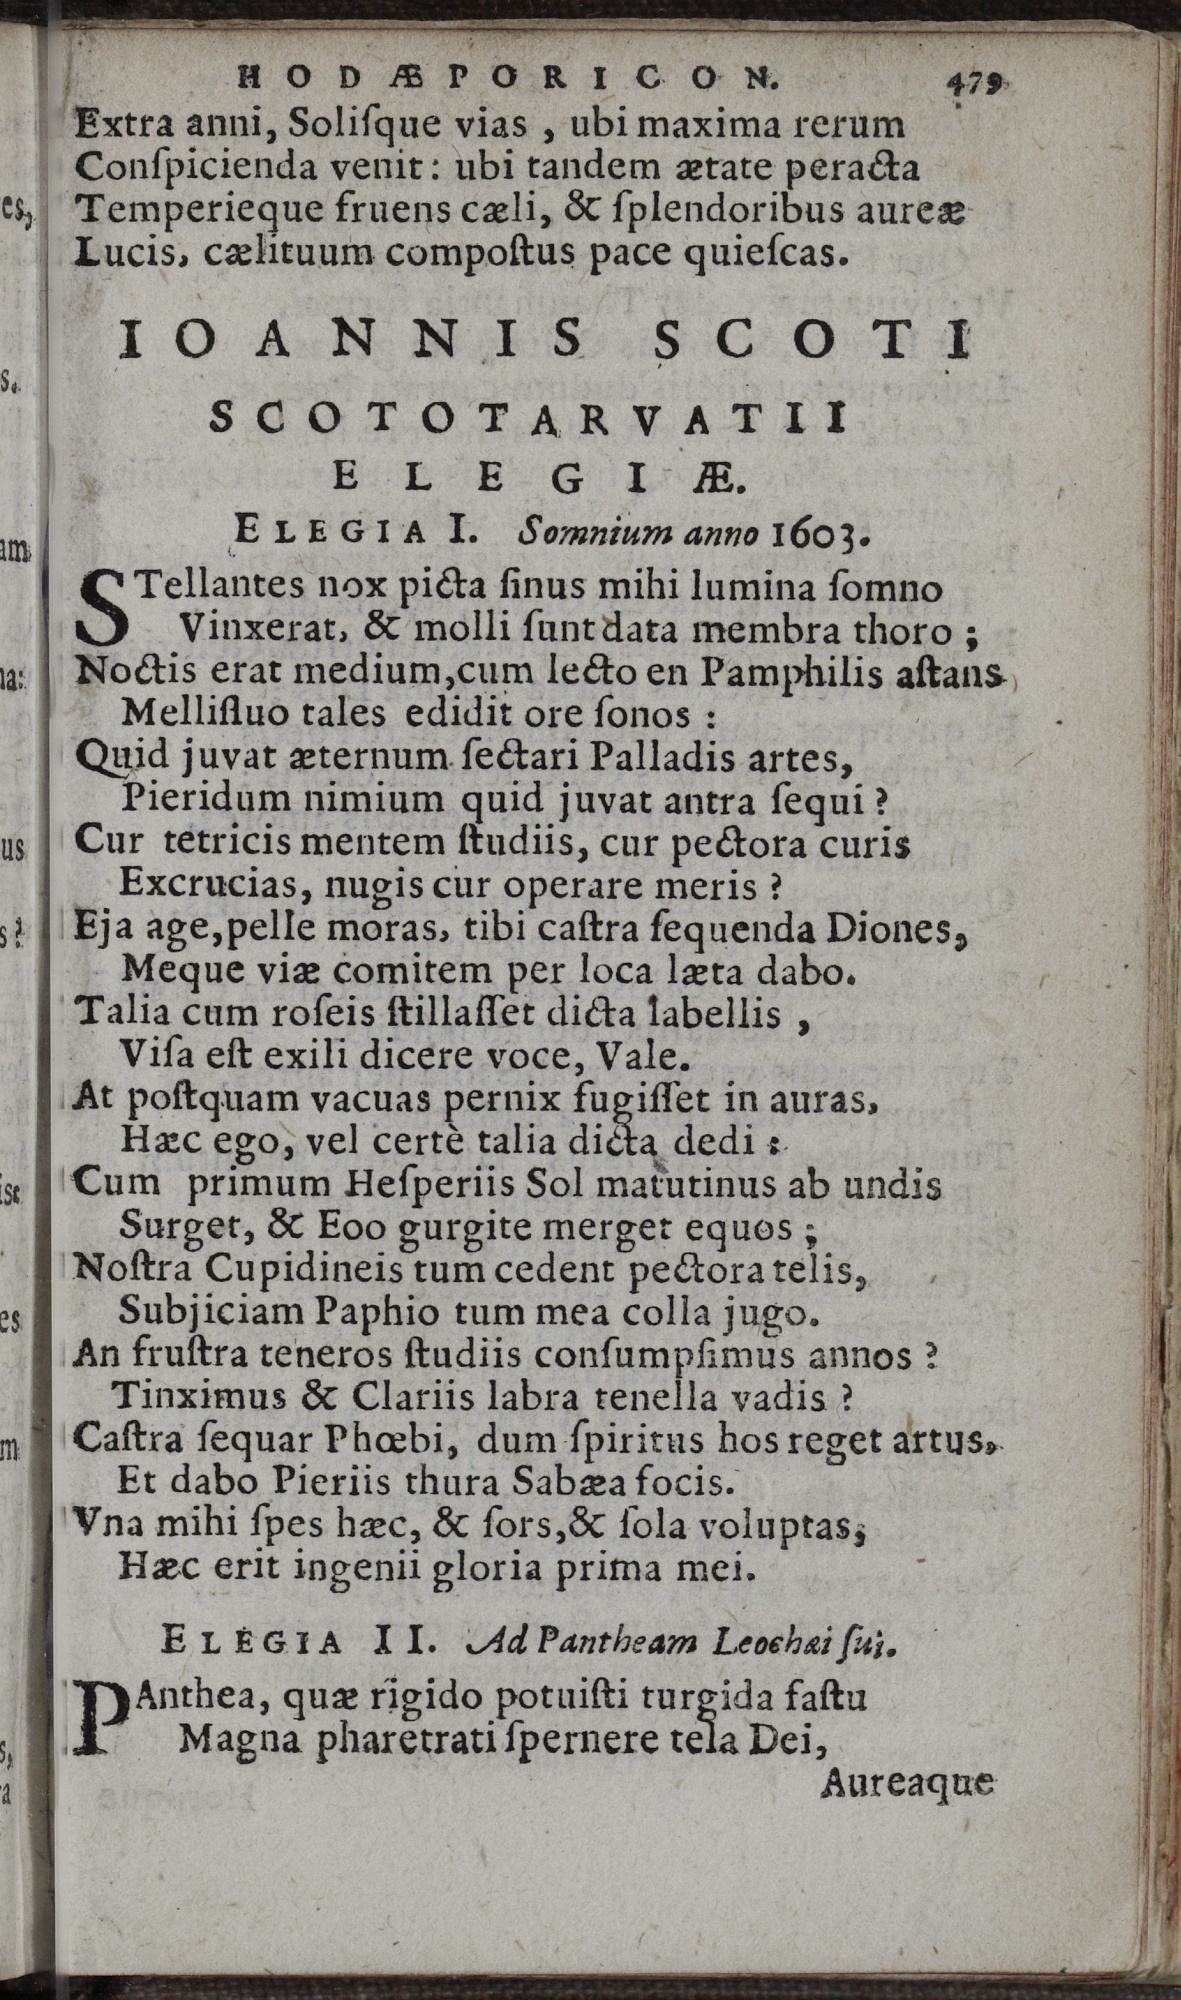 HODÆPORICON. 479
Extra anni, Soliſque vias , ubi maxima rerum
Conſpicienda venit : ubi tandem ætate peracta
Temperieque fruens cæli, & ſplendoribus aureæ
Lucis, cælituum compoſtus pace quieſcas.
IOANNIS SCOTI
SCOTOTARVATII
ELEGIÆ.
ELEGIA I. Somnium anno 1603.
STellantes nox picta ſinus mihi lumina ſomno
Vinxerat, & molli ſunt data membra thoro ;
Noctis erat medium,cum lecto en Pamphilis aſtans
Mellifluo tales edidit ore ſonos :
Quid juvat æternum ſectari Palladis artes,
Pieridum nimium quid juvat antra ſequi ?
Cur tetricis mentem ſtudiis, cur pectora curis
Excrucias, nugis cur operare meris ?
Eja age,pelle moras, tibi caſtra ſequenda Diones,
Meque viæ comitem per loca læta dabo.
Talia cum roſeis ſtillaſſet dicta labellis ,
Viſa eſt exili dicere voce, Vale.
At poſtquam vacuas pernix fugiſſet in auras,
Hæc ego, vel certè talia dicta dedi :
Cum primum Heſperiis Sol matutinus ab undis
Surget, & Eoo gurgite merget equos ;
Noſtra Cupidineis tum cedent pectora telis,
Subjiciam Paphio tum mea colla jugo.
An fruſtra teneros ſtudiis conſumpſimus annos ?
Tinximus & Clariis labra tenella vadis ?
Caſtra ſequar Phœbi, dum ſpiritus hos reget artus,
Et dabo Pieriis thura Sabæa focis.
Vna mihi ſpes hæc, & ſors,& ſola voluptas,
Hæc erit ingenii gloria prima mei.
ELEGIA II. Ad Pantheam Leochæi ſui.
PAnthea, quæ rigido potuiſti turgida faſtu
Magna pharetrati ſpernere tela Dei,
Aureaque